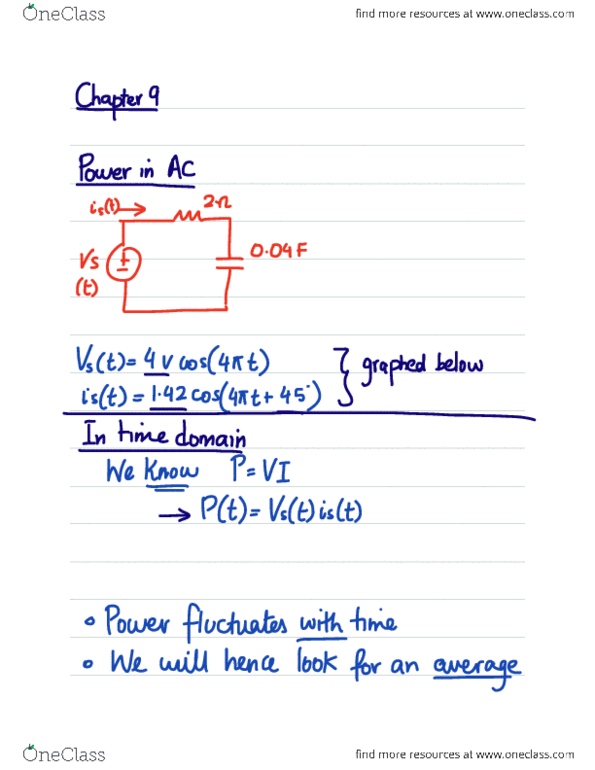 OneClass
find more resources at www.oneclass.com
Chapter 9
Power in AC
is(t)→ 2Ω
Vs
(t)
+
−
0.04F
Vs(t)= 4v cos(4πt)
is(t) = 1.42 cos(4πt+ 45°)
} graphed below
In time domain
We Know P=VI
→ P(t)= Vs(t) is(t)
• Power fluctuates with time
• We will hence look for an average
OneClass
find more resources at www.oneclass.com